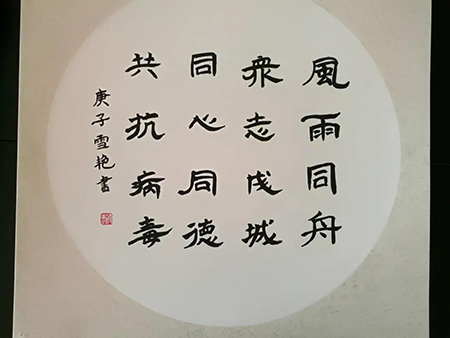 風雨同舟
衆志成城
同心同德
共抗病毒
庚子雪艳書